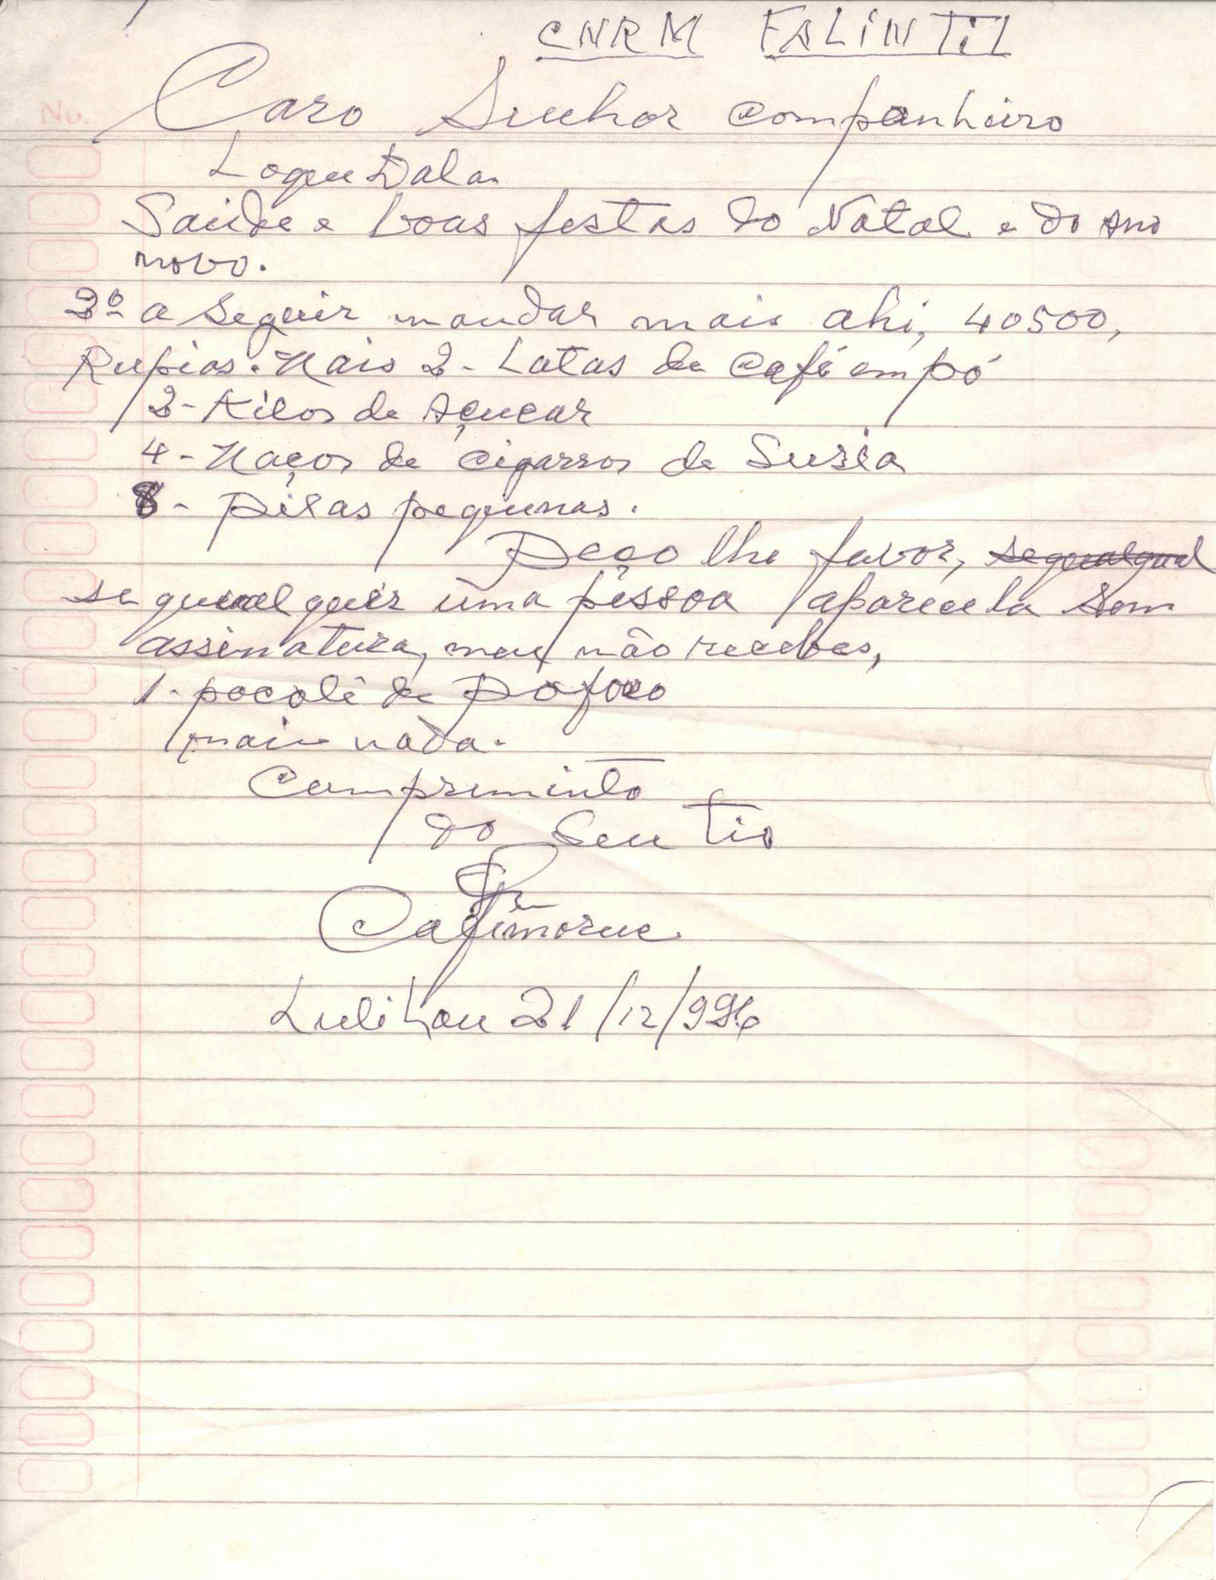 CNRM FALINTIL
No.
Caro Senhor companheiro
Loqeu Dala.
Saúde e boas festas do Natal e do Ano
novo.
2º a seguir mandar mais ahi, 40500,
Rupias. Mais 2 - Latas de café em pó
2 - Kilos de Açucar
4 - Maços de cigarros de Suria
8 - pilas pequenas.
Peço lhe favor,
se qualquer uma pessoa aparecela sem
assinatura, não recebes,
1 - pocoli de
mais nada.
Comprimento
do Seu Tio
Lulihou 21/12/996